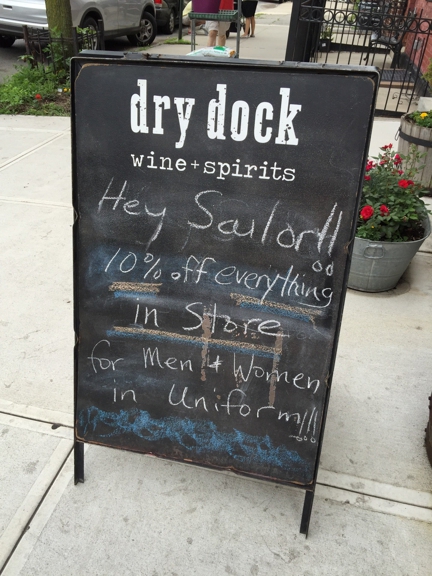 dry dock
wine+spirits
Hey Sailor!!
10% off everything
in Store
for Men & Women
in Uniform!!!